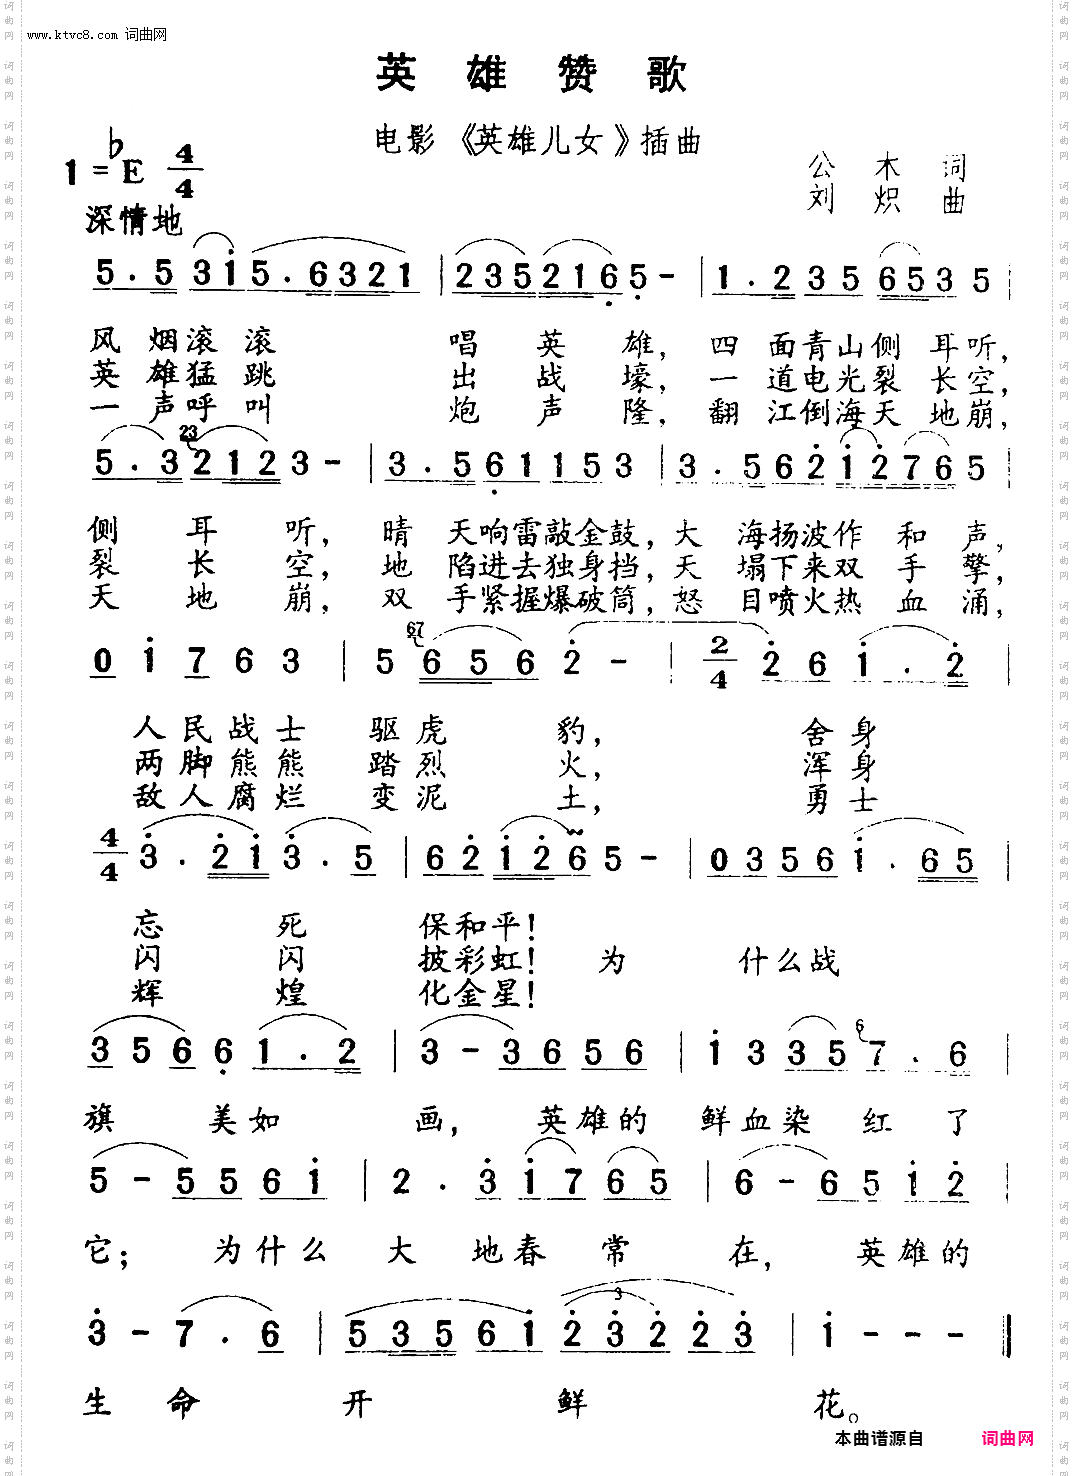 www.ktvc8.com 词曲网
英雄赞歌
电影《英雄儿女》插曲
1=♭E 4/4
公木 词
刘炽 曲
深情地
5.5 3i 5.6321 | 235 216 5 - | 1.2 35 65 35 |
风烟滚滚 唱英雄,四面青山侧耳听,
英雄猛跳 出战壕,一道电光裂长空,
一声呼叫 炮声隆,翻江倒海天地崩,
5.3 23 2123 - | 3.5 61 15 3 | 3.5 62 i276 5 |
侧耳听,晴天响雷敲金鼓,大海扬波作和声,
裂长空,地陷进去独身挡,天塌下来双手擎,
天地崩,双手紧握爆破筒,怒目喷火热血涌,
0 i 7 6 3 | 5 67 6 5 6 2 - | 2/4 2 6 i . 2 |
人民战士驱虎豹,舍身
两脚熊熊踏烈火,浑身
敌人腐烂变泥土,勇士
4/4 3 . 2 i 3 . 5 | 6 2 i 2 6 5 - | 0 3 5 6 i . 6 5 |
忘死保和平!
闪闪披彩虹! 为什么战
辉煌化金星!
3 5 6 6 1 . 2 | 3 - 3 6 5 6 | i 3 3 5 6 7 . 6 |
旗美如画,英雄的鲜血染红了
5 - 5 5 6 i | 2 . 3 i 7 6 5 | 6 - 6 5 i 2 |
它;为什么大地春常在,英雄的
3 - 7 . 6 | 5 3 5 6 i 3 2 3 2 2 3 | i - - - ‖
生命开鲜花。
本曲谱源自 词曲网